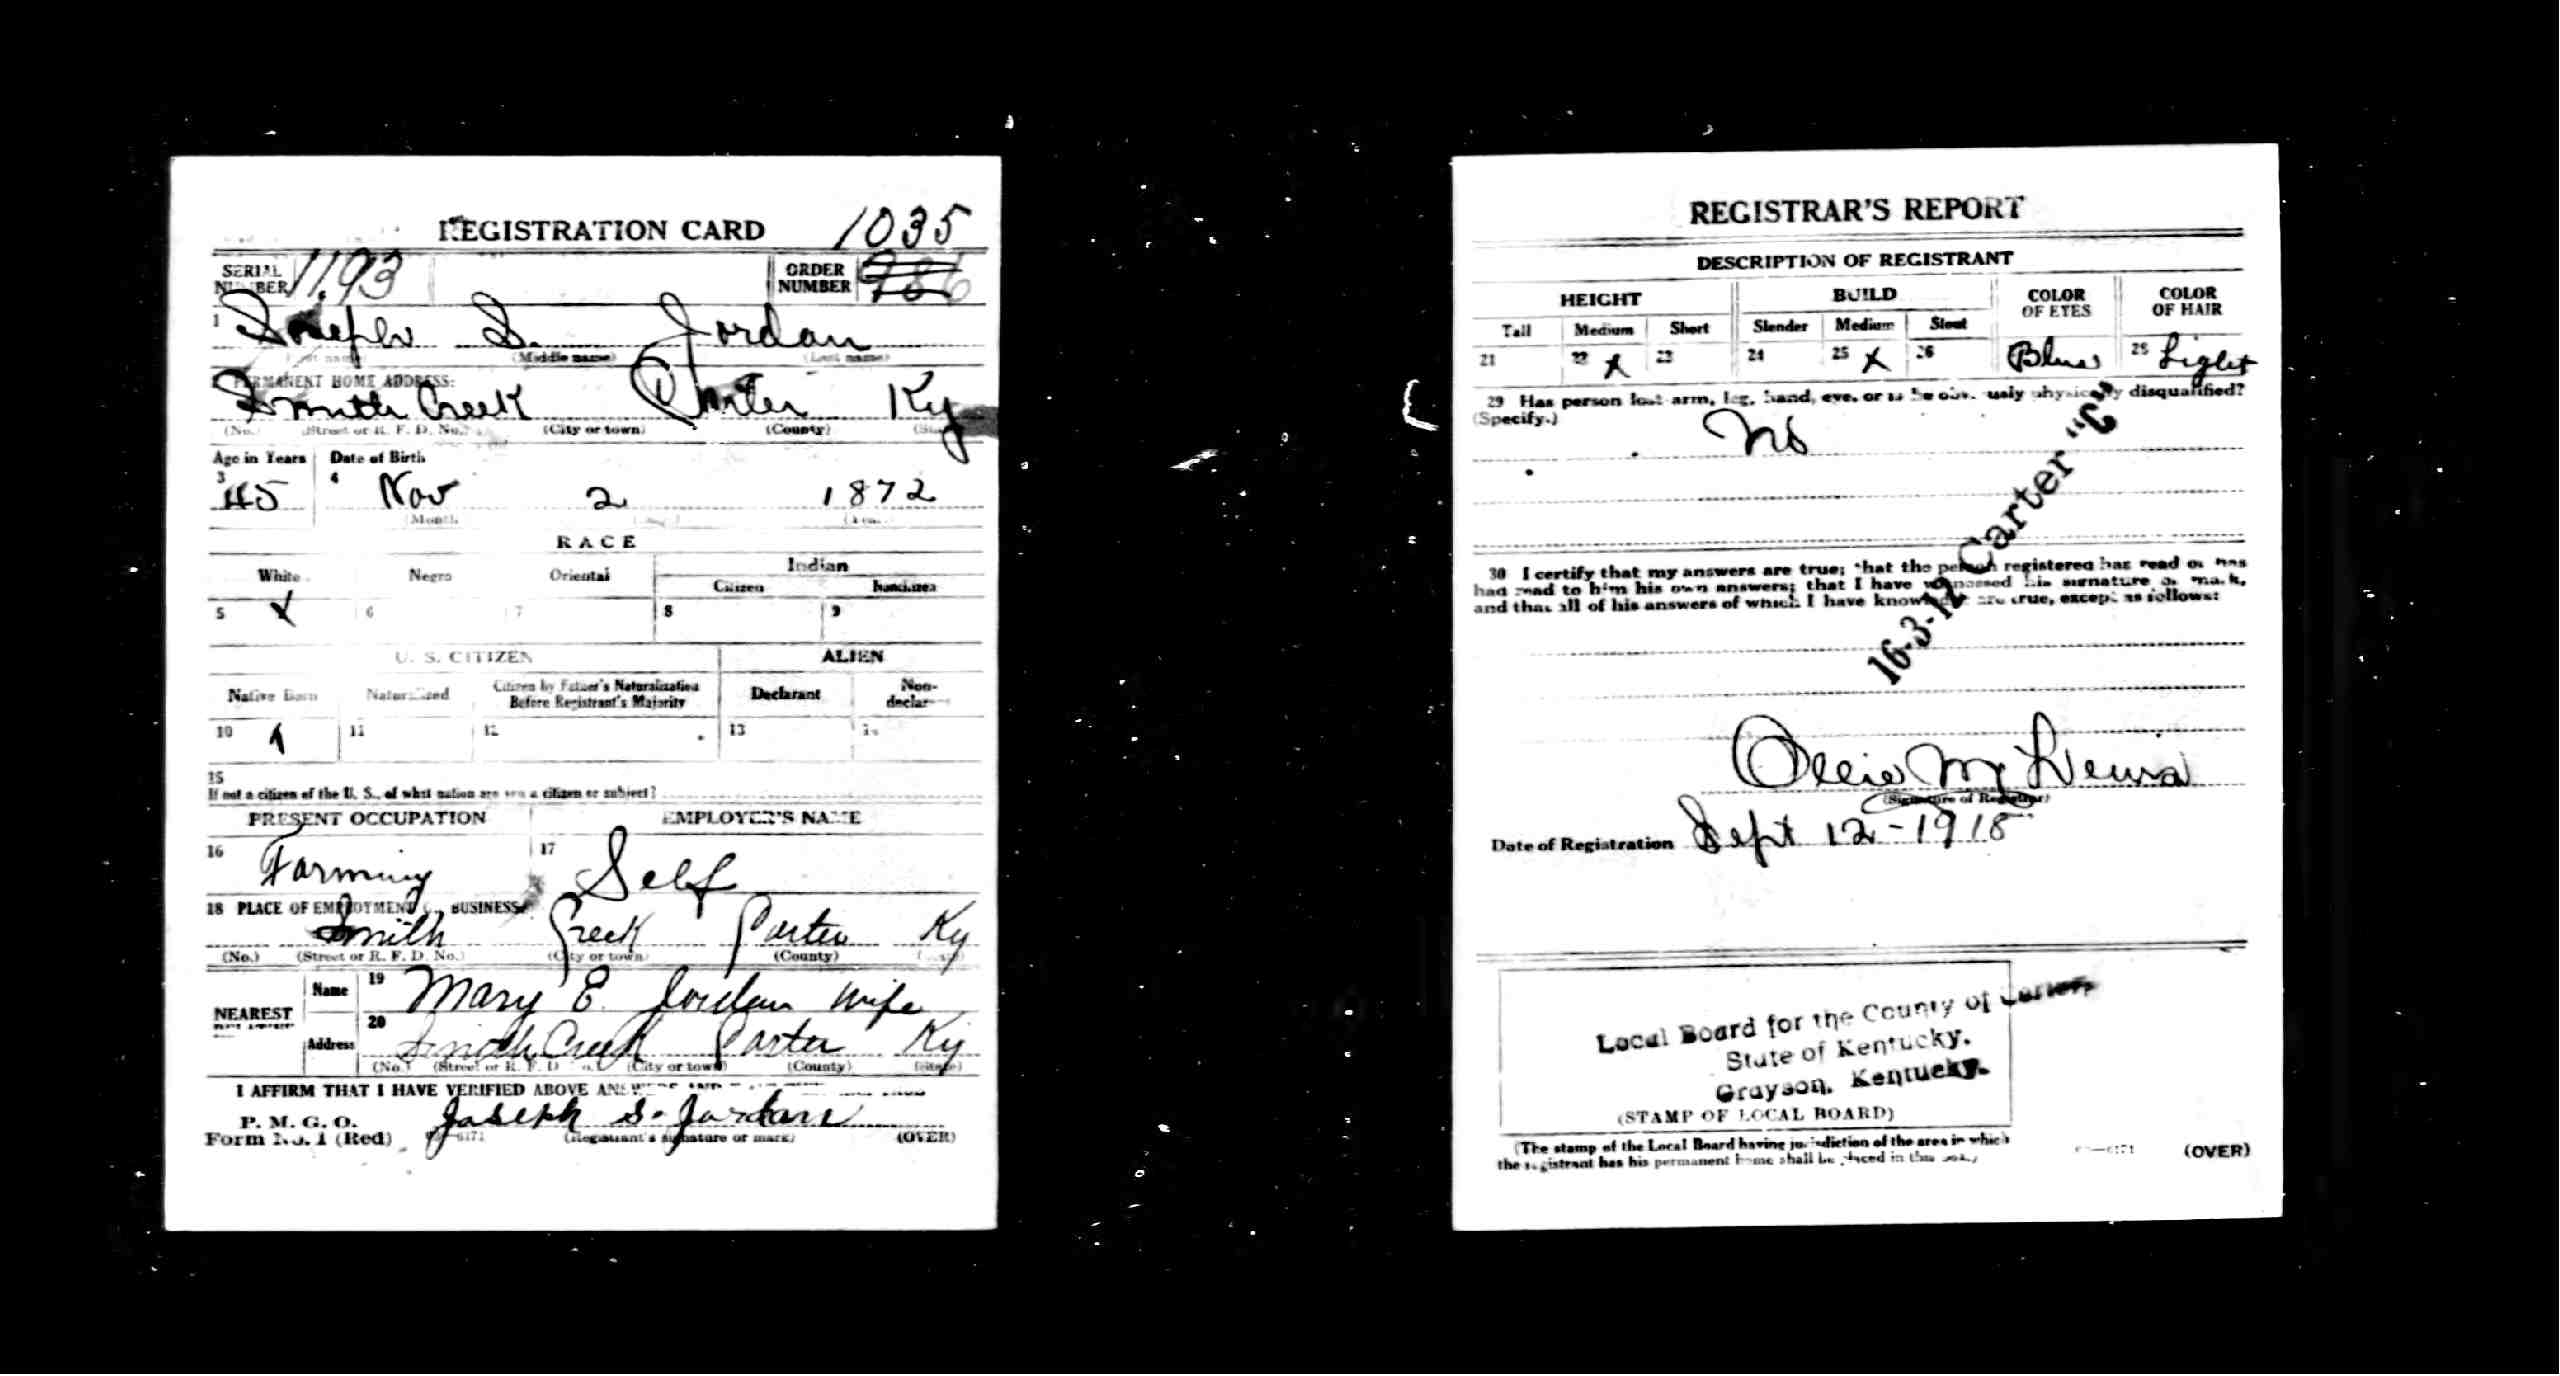 REGISTRATION CARD 1035
SERIAL NUMBER 1193 ORDER NUMBER 986
1 Joseph S. Jordan
(Middle name) (Last name)
PERMANENT HOME ADDRESS:
Smith Creek Carter Ky
(No.) (Street or R. F. D. No.) (City or town) (County)
Age in Years Date of Birth
3 45 4 Nov 2 1872
(Month)
RACE
White Negro Oriental Indian
Citizen
5 X 6 7 8 9
U. S. CITIZEN ALIEN
Native Born Naturalized Citizen by Father's Naturalization Before Registrant's Majority Declarant Non-declar
10 11 12 13
15
If not a citizen of the U. S., of what nation are you a citizen or subject?
PRESENT OCCUPATION EMPLOYER'S NAME
16 Farming 17 Self
18 PLACE OF EMPLOYMENT BUSINESS
Smith Creek Carter Ky
(No.) (Street or R. F. D. No.) (City or town) (County)
NEAREST Name 19 Mary E. Jordan Wife
Address 20 Smith Creek Carter Ky
(No.) (Street or R. F. D (City or town) (County) (State)
I AFFIRM THAT I HAVE VERIFIED ABOVE
P. M. G. O.
Form No. 1 (Red) Joseph S. Jordan
(Registrant's signature or mark) (OVER)
REGISTRAR'S REPORT
DESCRIPTION OF REGISTRANT
HEIGHT BUILD COLOR OF EYES COLOR OF HAIR
Tall Medium Short Slender Medium Stout
21 22 X 23 24 25 X 26 Blue 28 Light
29 Has person lost arm, leg, hand, eye, or is he obviously physically disqualified?
(Specify.) No
16-3-12 Carter "C"
30 I certify that my answers are true; that the person registered has read or has
had read to him his own answers; that I have witnessed his signature or mark,
and that all of his answers of which I have knowledge are true, except as follows:
Ollie M Lewis
(Signature of Registrar)
Date of Registration Sept 12-1918
Local Board for the County of Carter,
State of Kentucky.
Grayson, Kentucky.
(STAMP OF LOCAL BOARD)
(The stamp of the Local Board having jurisdiction of the area in which
the registrant has his permanent home shall be placed in this box.)
(OVER)